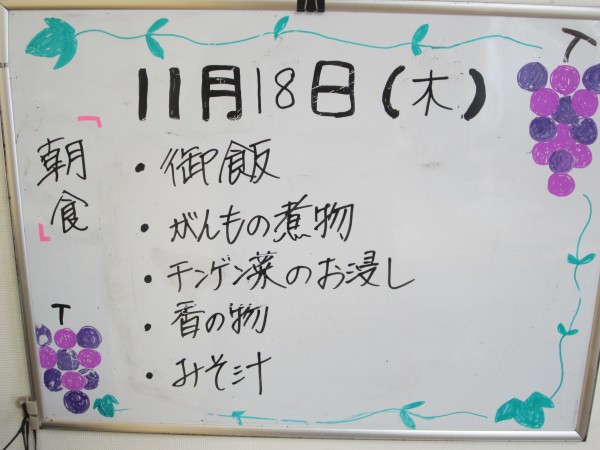 11月18日(木)
「朝食」
・御飯
・がんもの煮物
・チンゲン菜のお浸し
・香の物
・みそ汁